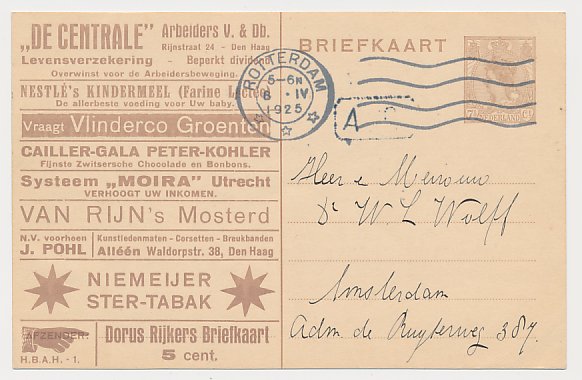 „DE CENTRALE" Arbeiders V. & Db.
Rijnstraat 24 - Den Haag
Levensverzekering - Beperkt dividend
Overwinst voor de Arbeidersbeweging.
NESTLÉ's KINDERMEEL (Farine Lactée)
De allerbeste voeding voor Uw baby.
Vraagt Vlinderco Groenten
CAILLER-GALA PETER-KOHLER
Fijnste Zwitsersche Chocolade en Bonbons.
Systeem „MOIRA" Utrecht
VERHOOGT UW INKOMEN.
VAN RIJN's Mosterd
N.V. voorheen
J. POHL
Kunstledenmaten - Corsetten - Breukbanden
Alléén Waldorpstr. 38, Den Haag
NIEMEIJER
STER-TABAK
AFZENDER:
H.B.A.H. - 1.
Dorus Rijkers Briefkaart
5 cent.
BRIEFKAART
ROTTERDAM
5-6N
8 · IV
1925
A
7½ NEDERLAND Ct
Heer e Mevrouw
Dr W L Wolff
Amsterdam
Adm de Ruyterweg 387.